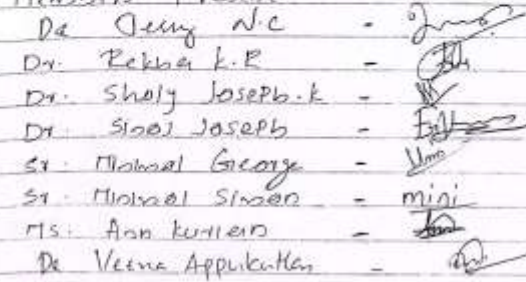 Members Present
Dr Deeny N.C -
Dr. Rekha K.R -
Dr. Sholy Joseph.K -
Dr. Sinoj Joseph -
Sr. Minimol George -
Sr. Minimol Simon - mini
Ms. Ann Kurien -
Dr Veena Appukuttan -